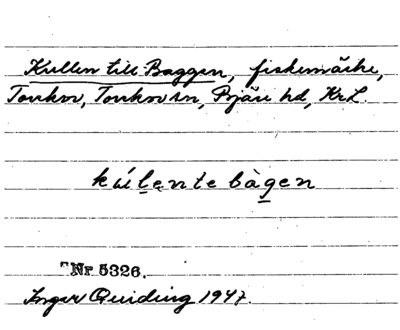 Kullen till Baggen, fiskemärke,
Torekov, Torekov sn, Bjäre hd, KrL.
kúl̯ente bàg̱en
Nr 5326.
Inger Quiding 1947.